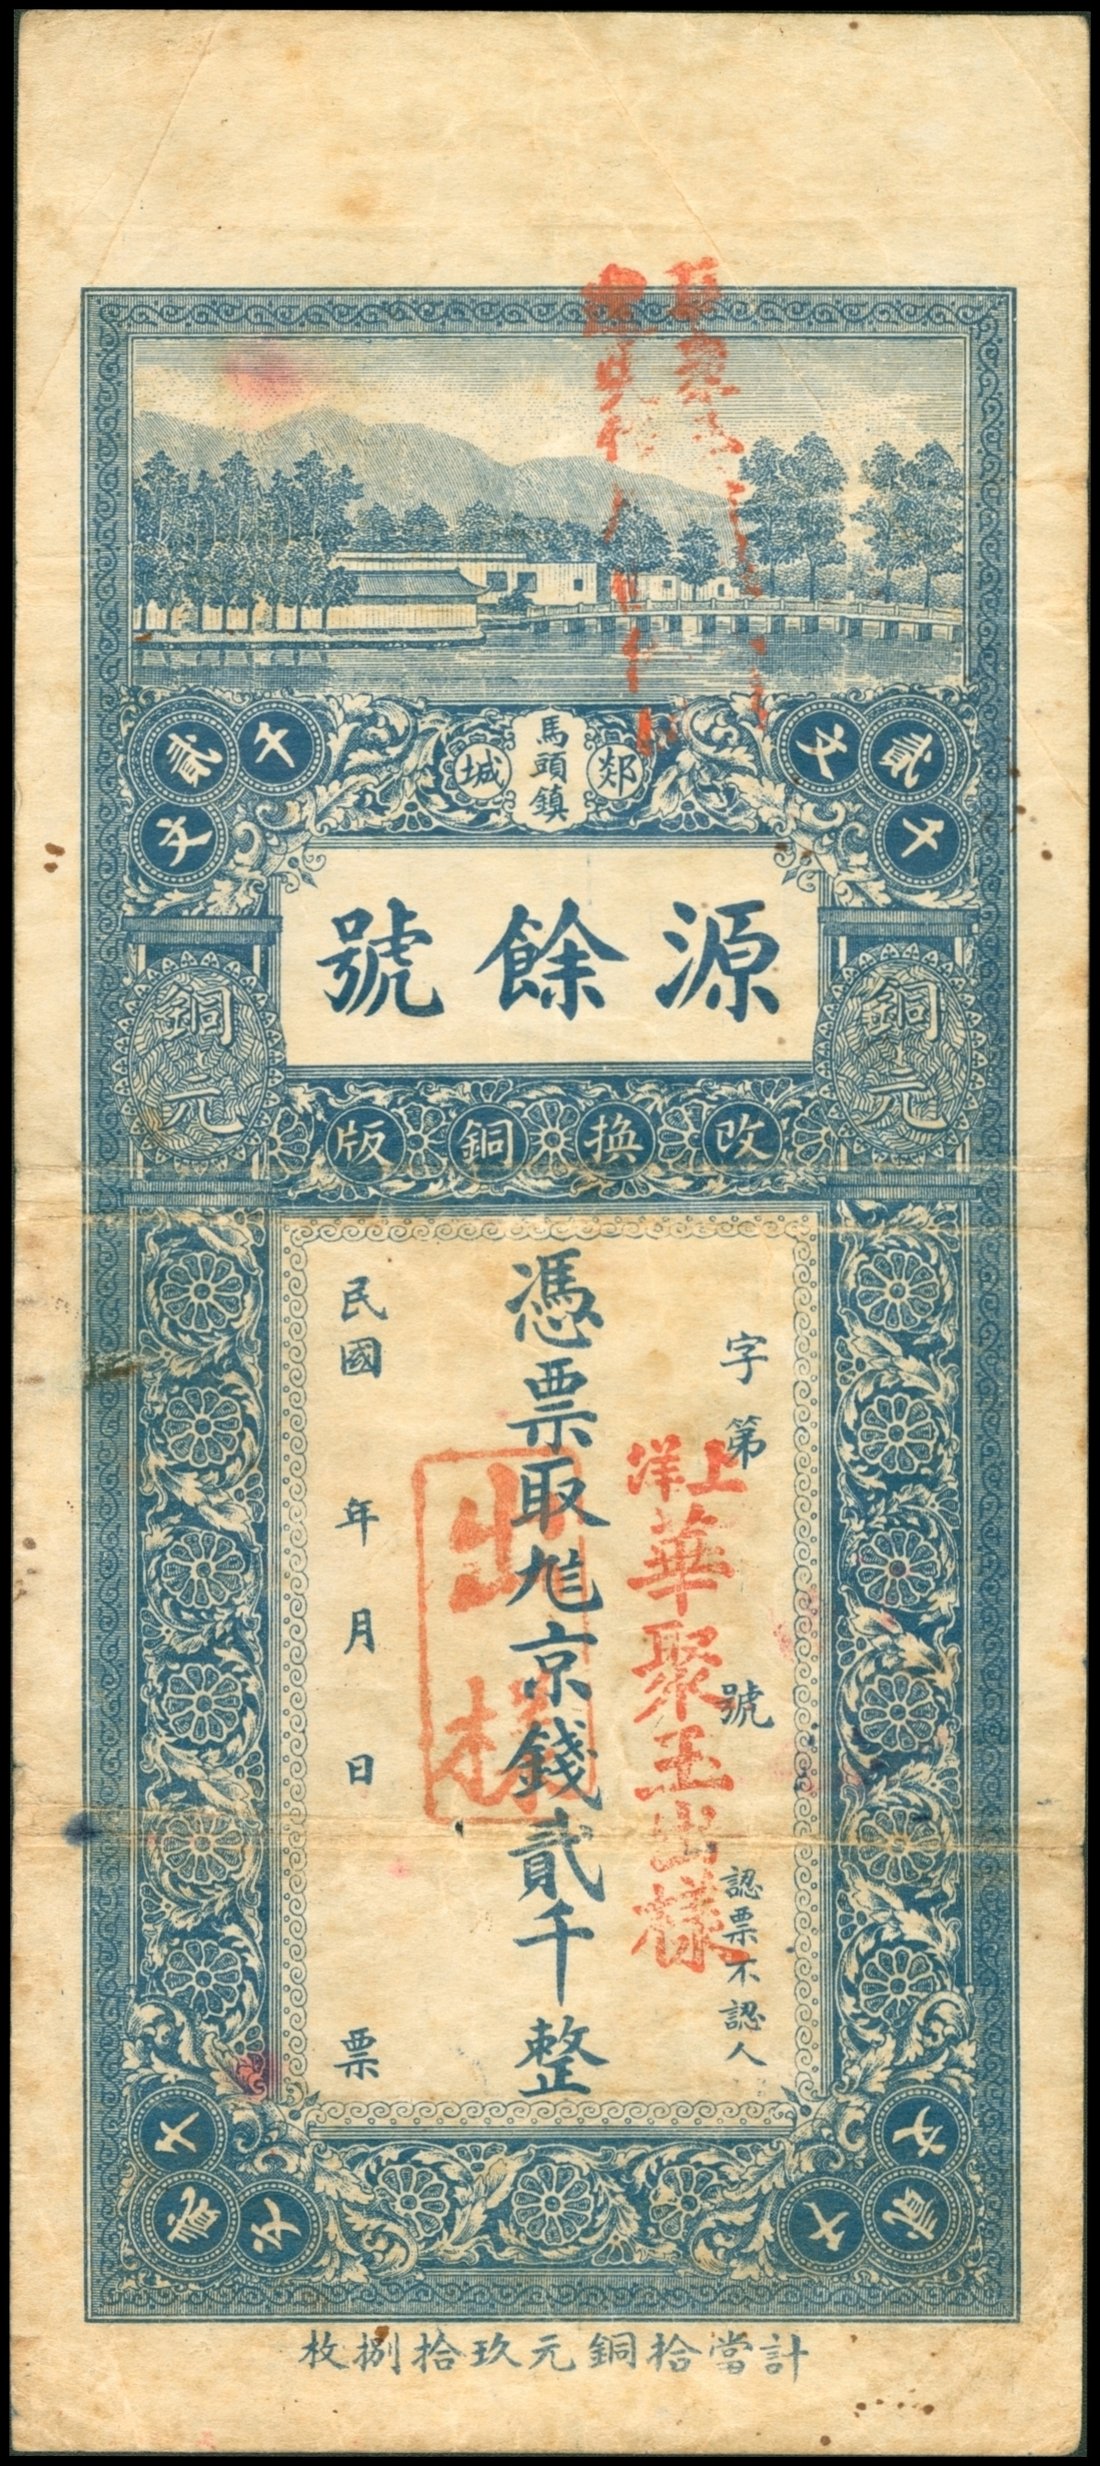 郯城
馬頭鎮
貳千文
貳千文
源餘號
銅元
銅元
改換銅版
字第 號
認票不認人
憑票取尨京錢貳千整
民國 年 月 日 票
上洋華聚玉出樣
出樣
貳千文
貳千文
計當拾銅元玖拾捌枚